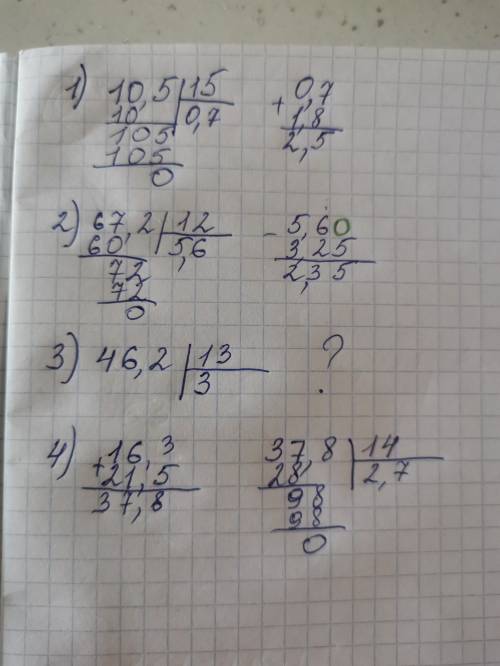 1) 10,5 | 15    0,7
10 | 0,7    + 1,8
105    2,5
105
0
2) 67,2 | 12    - 5,60
60 | 5,6    3,25
72    2,35
72
0
3) 46,2 | 13    ?
3
4) + 16,3    37,8 | 14
21,5    28 | 2,7
37,8    98
98
0